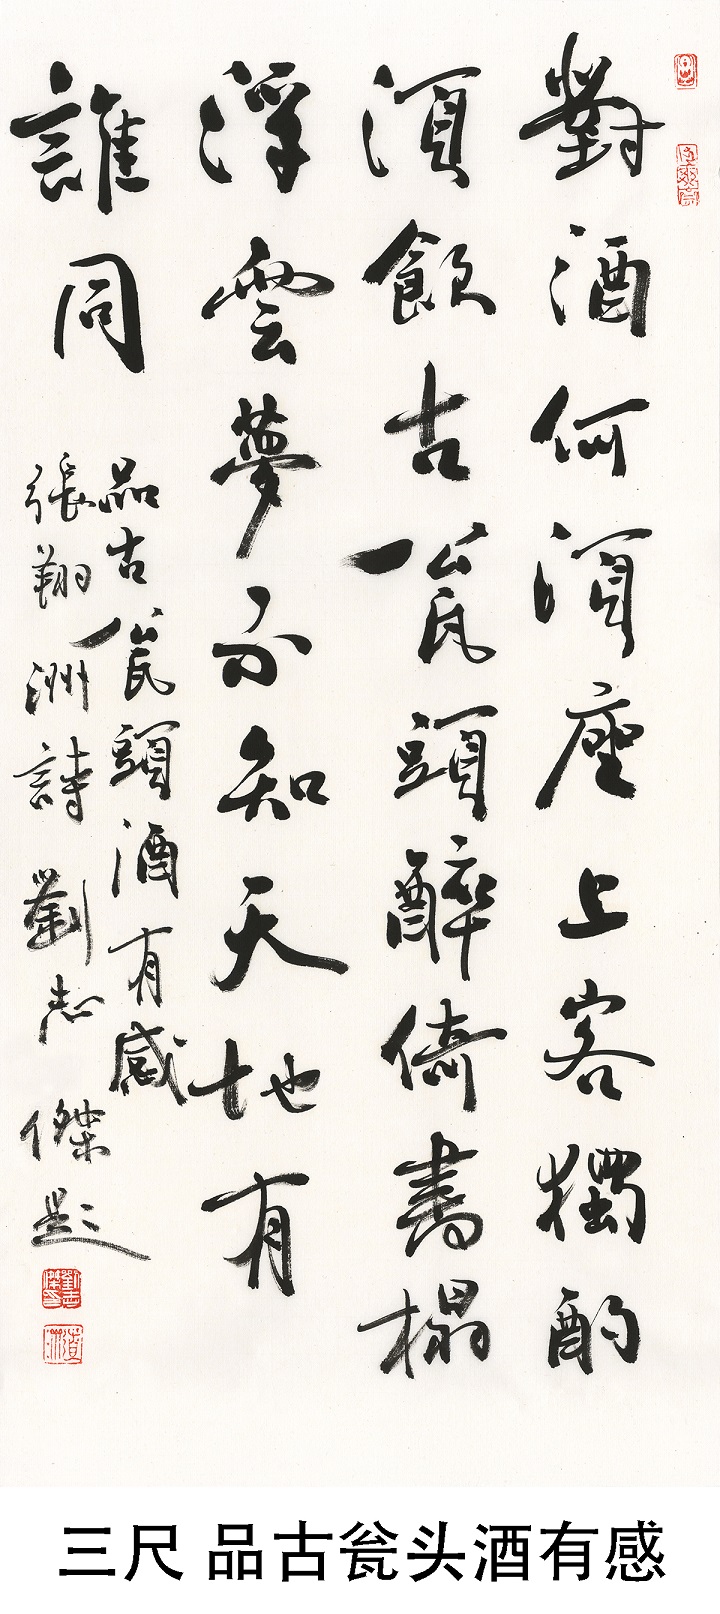 對酒何須座上客獨酌
須飲古瓮頭醉倚書榻
浮雲夢不知天地有
誰同
品古瓮頭酒有感
張翔洲詩 劉志傑題
三尺 品古瓮头酒有感